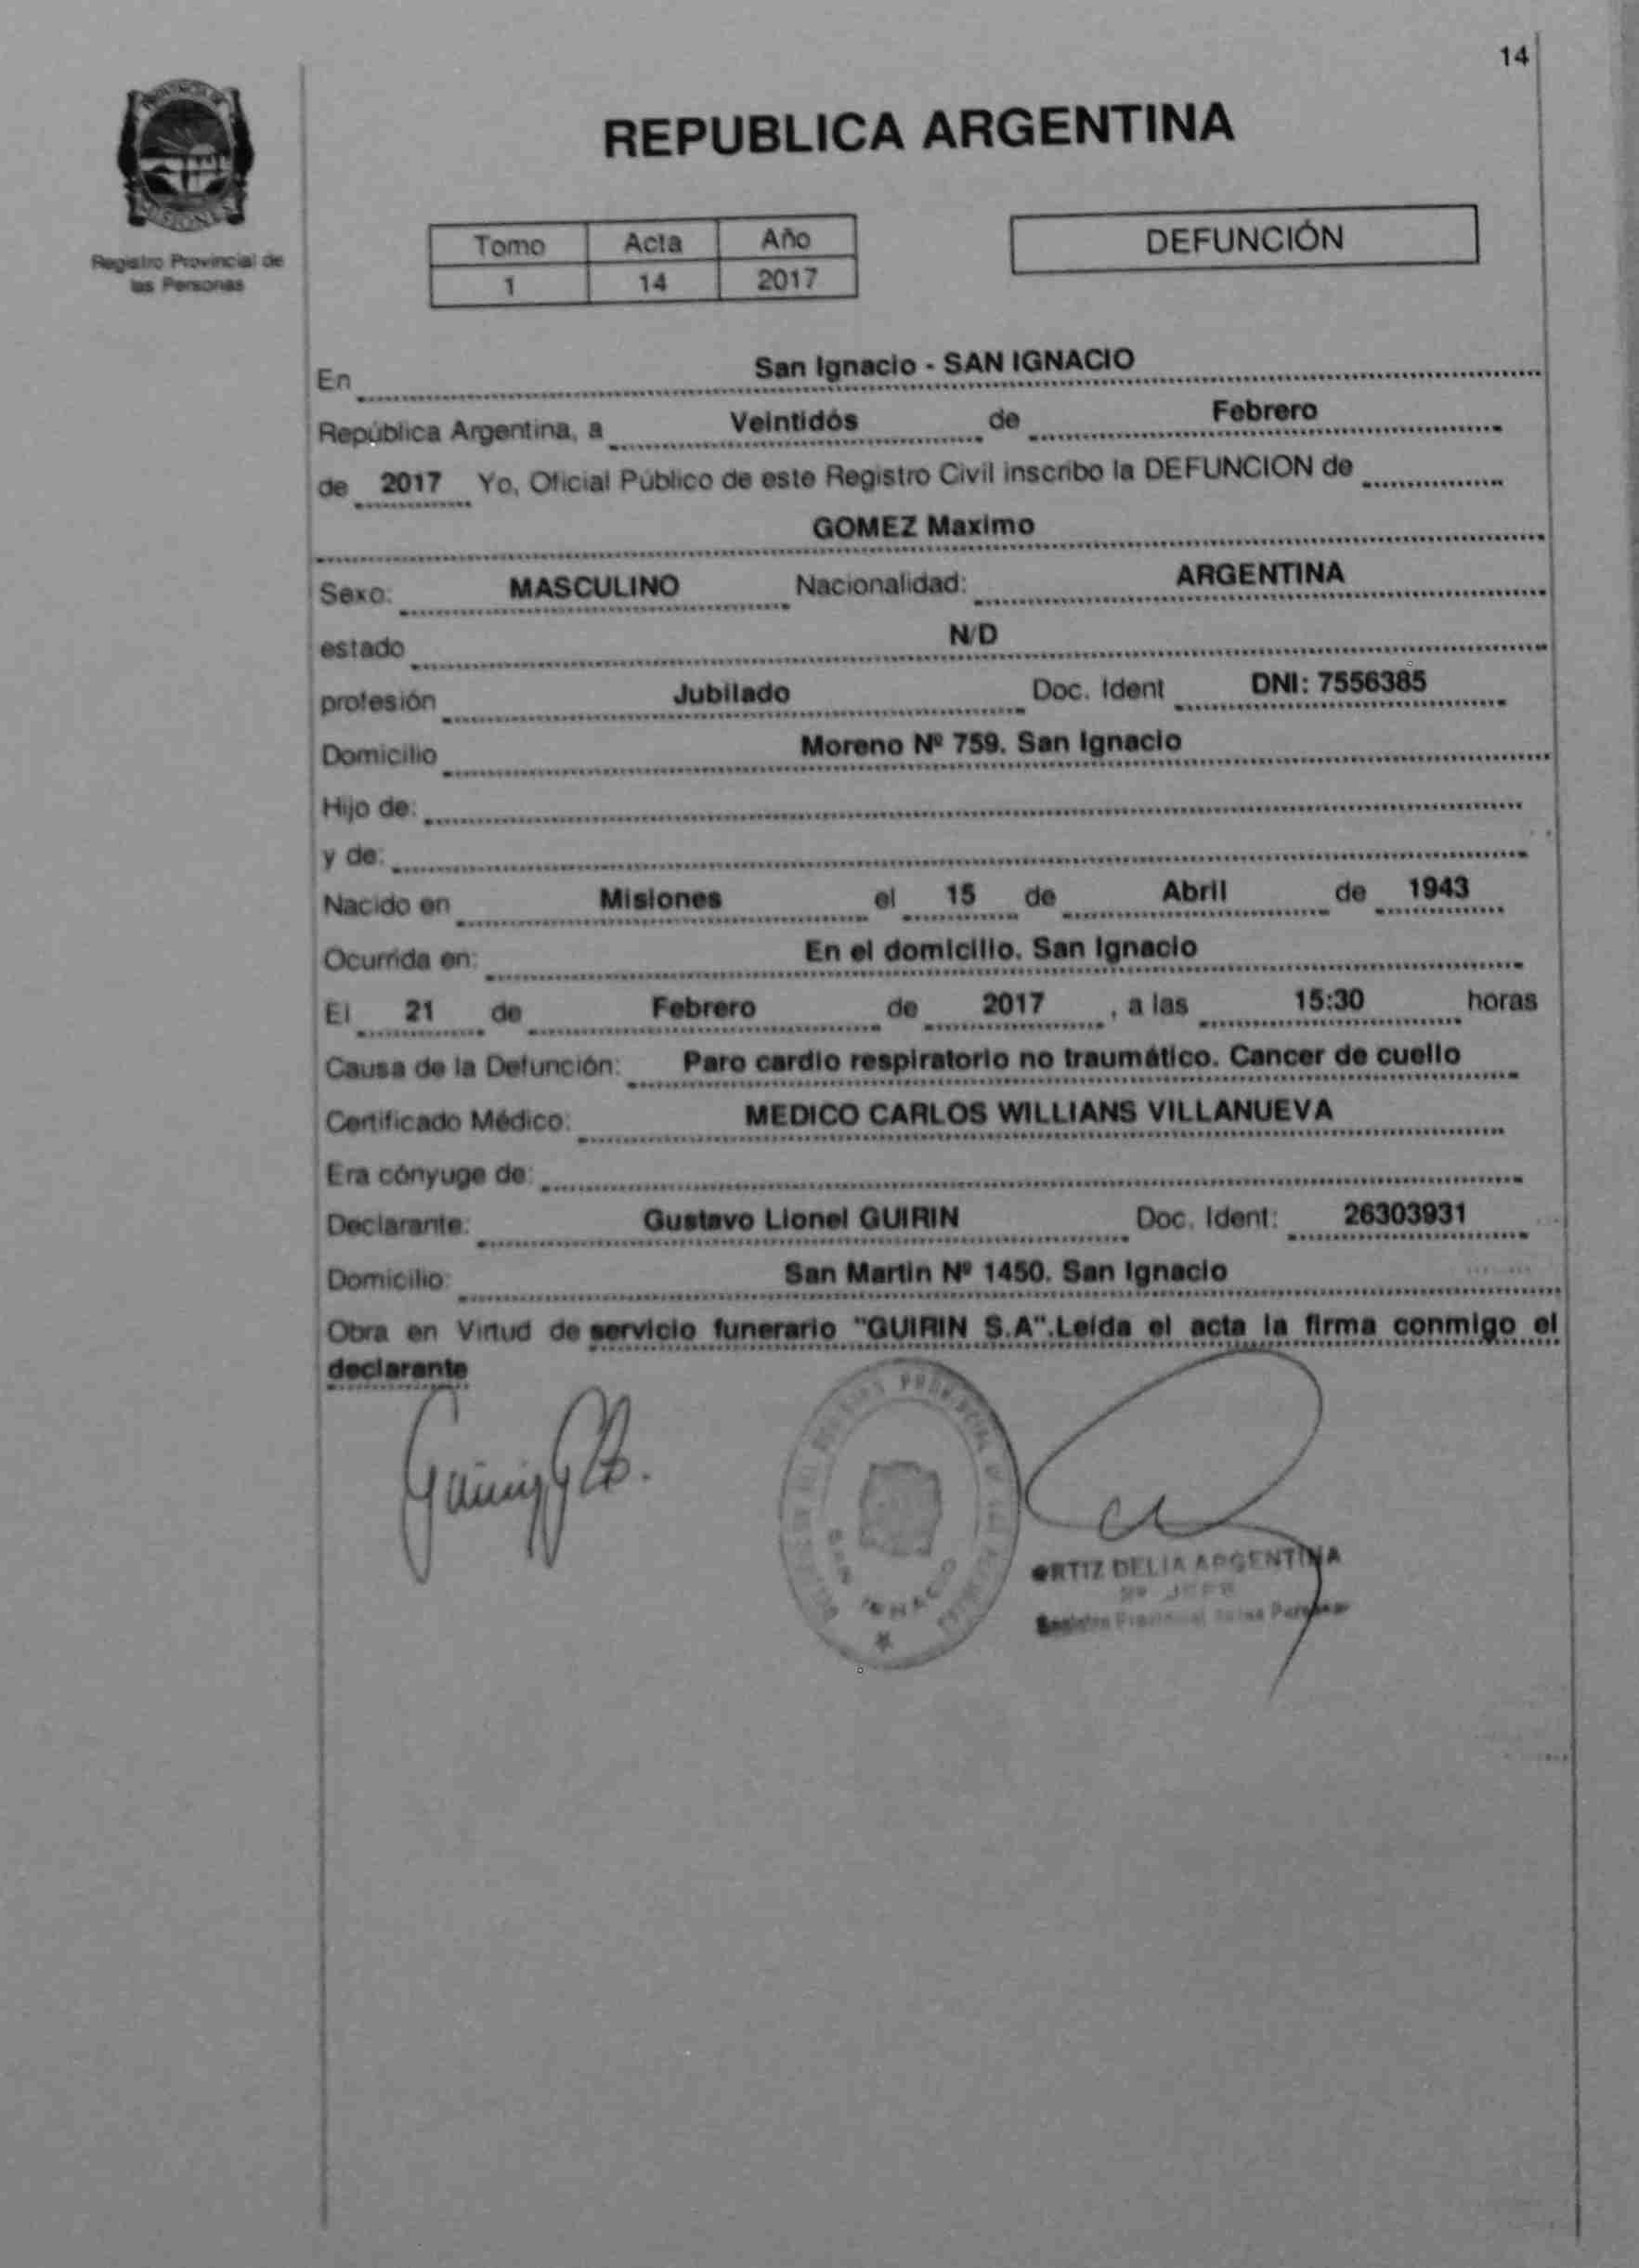 14
PROVINCIA DE
MISIONES
Registro Provincial de
las Personas
REPUBLICA ARGENTINA
Tomo Acta Año
1 14 2017
DEFUNCIÓN
En San Ignacio - SAN IGNACIO
República Argentina, a Veintidós de Febrero
de 2017 Yo, Oficial Público de este Registro Civil inscribo la DEFUNCION de
GOMEZ Maximo
Sexo: MASCULINO Nacionalidad: ARGENTINA
estado N/D
profesión Jubilado Doc. Ident DNI: 7556385
Domicilio Moreno Nº 759. San Ignacio
Hijo de:
y de:
Nacido en Misiones el 15 de Abril de 1943
Ocurrida en: En el domicilio. San Ignacio
El 21 de Febrero de 2017 , a las 15:30 horas
Causa de la Defunción: Paro cardio respiratorio no traumático. Cancer de cuello
Certificado Médico: MEDICO CARLOS WILLIANS VILLANUEVA
Era cónyuge de:
Declarante: Gustavo Lionel GUIRIN Doc. Ident: 26303931
Domicilio: San Martin Nº 1450. San Ignacio
Obra en Virtud de servicio funerario "GUIRIN S.A".Leída el acta la firma conmigo el
declarante
PROVINCIAL
SAN IGNACIO
ORTIZ DELIA ARGENTINA
Registro Provincial de las Personas